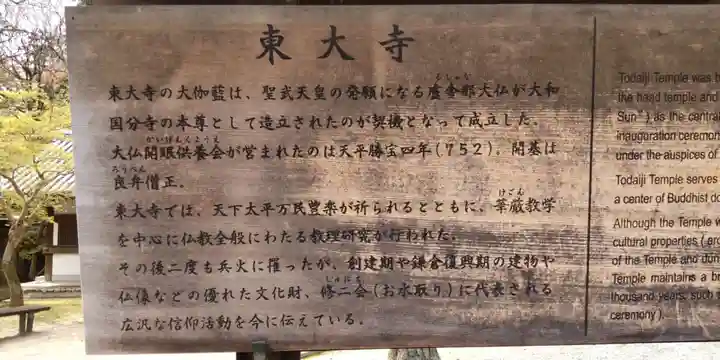 東大寺
東大寺の大伽藍は、聖武天皇の発願になる盧舎那大仏が大和
るしゃな
国分寺の本尊として造立されたのが契機となって成立した。
かいげんくようえ
大仏開眼供養会が営まれたのは天平勝宝四年(752)、開基は
ろうべん
良弁僧正。
東大寺では、天下太平万民豊楽が祈られるとともに、華厳教学
けごん
を中心に仏教全般にわたる教理研究が行われた。
その後二度も兵火に罹ったが、創建期や鎌倉復興期の建物や
仏像などの優れた文化財、修二会(お水取り)に代表される
しゅにえ
広汎な信仰活動を今に伝えている。
Todaiji Temple was
the head temple and
Sun") as the central
inauguration ceremony
under the auspices of
Todaiji Temple serves
a center of Buddhist
Although the Temple
cultural properties (
of the Temple and
Temple maintains a
thousand years, such
ceremony).